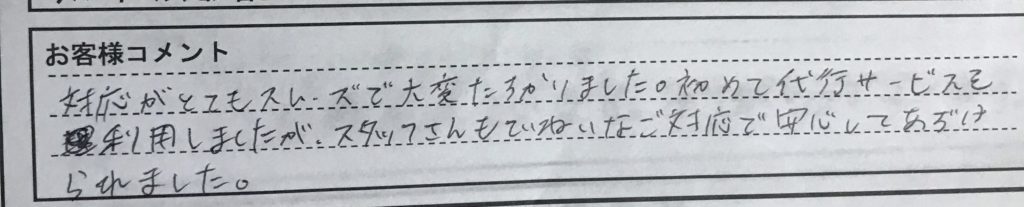 お客様コメント
対応がとてもスムーズで大変たすかりました。初めて代行サービスを
利用しましたが、スタッフさんもていねいなご対応で安心してあずけ
られました。